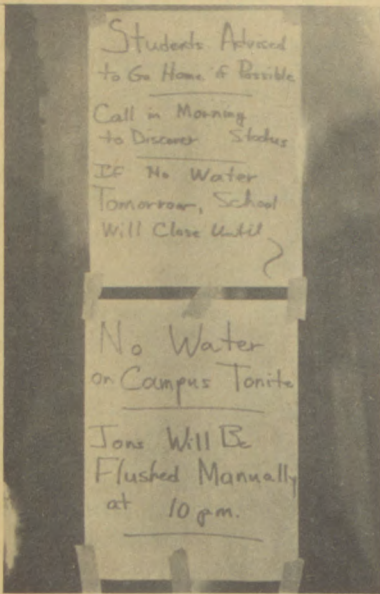 Students Advised
to Go Home if Possible
Call in Morning
to Discover Status
If No Water
Tomorrow, School
Will Close Until
?
No Water
on Campus Tonite
Johns Will Be
Flushed Manually
at 10 p.m.